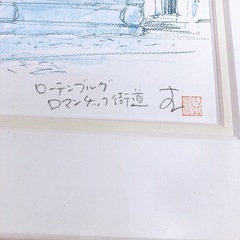 ローテンブルグ
ロマンチック街道